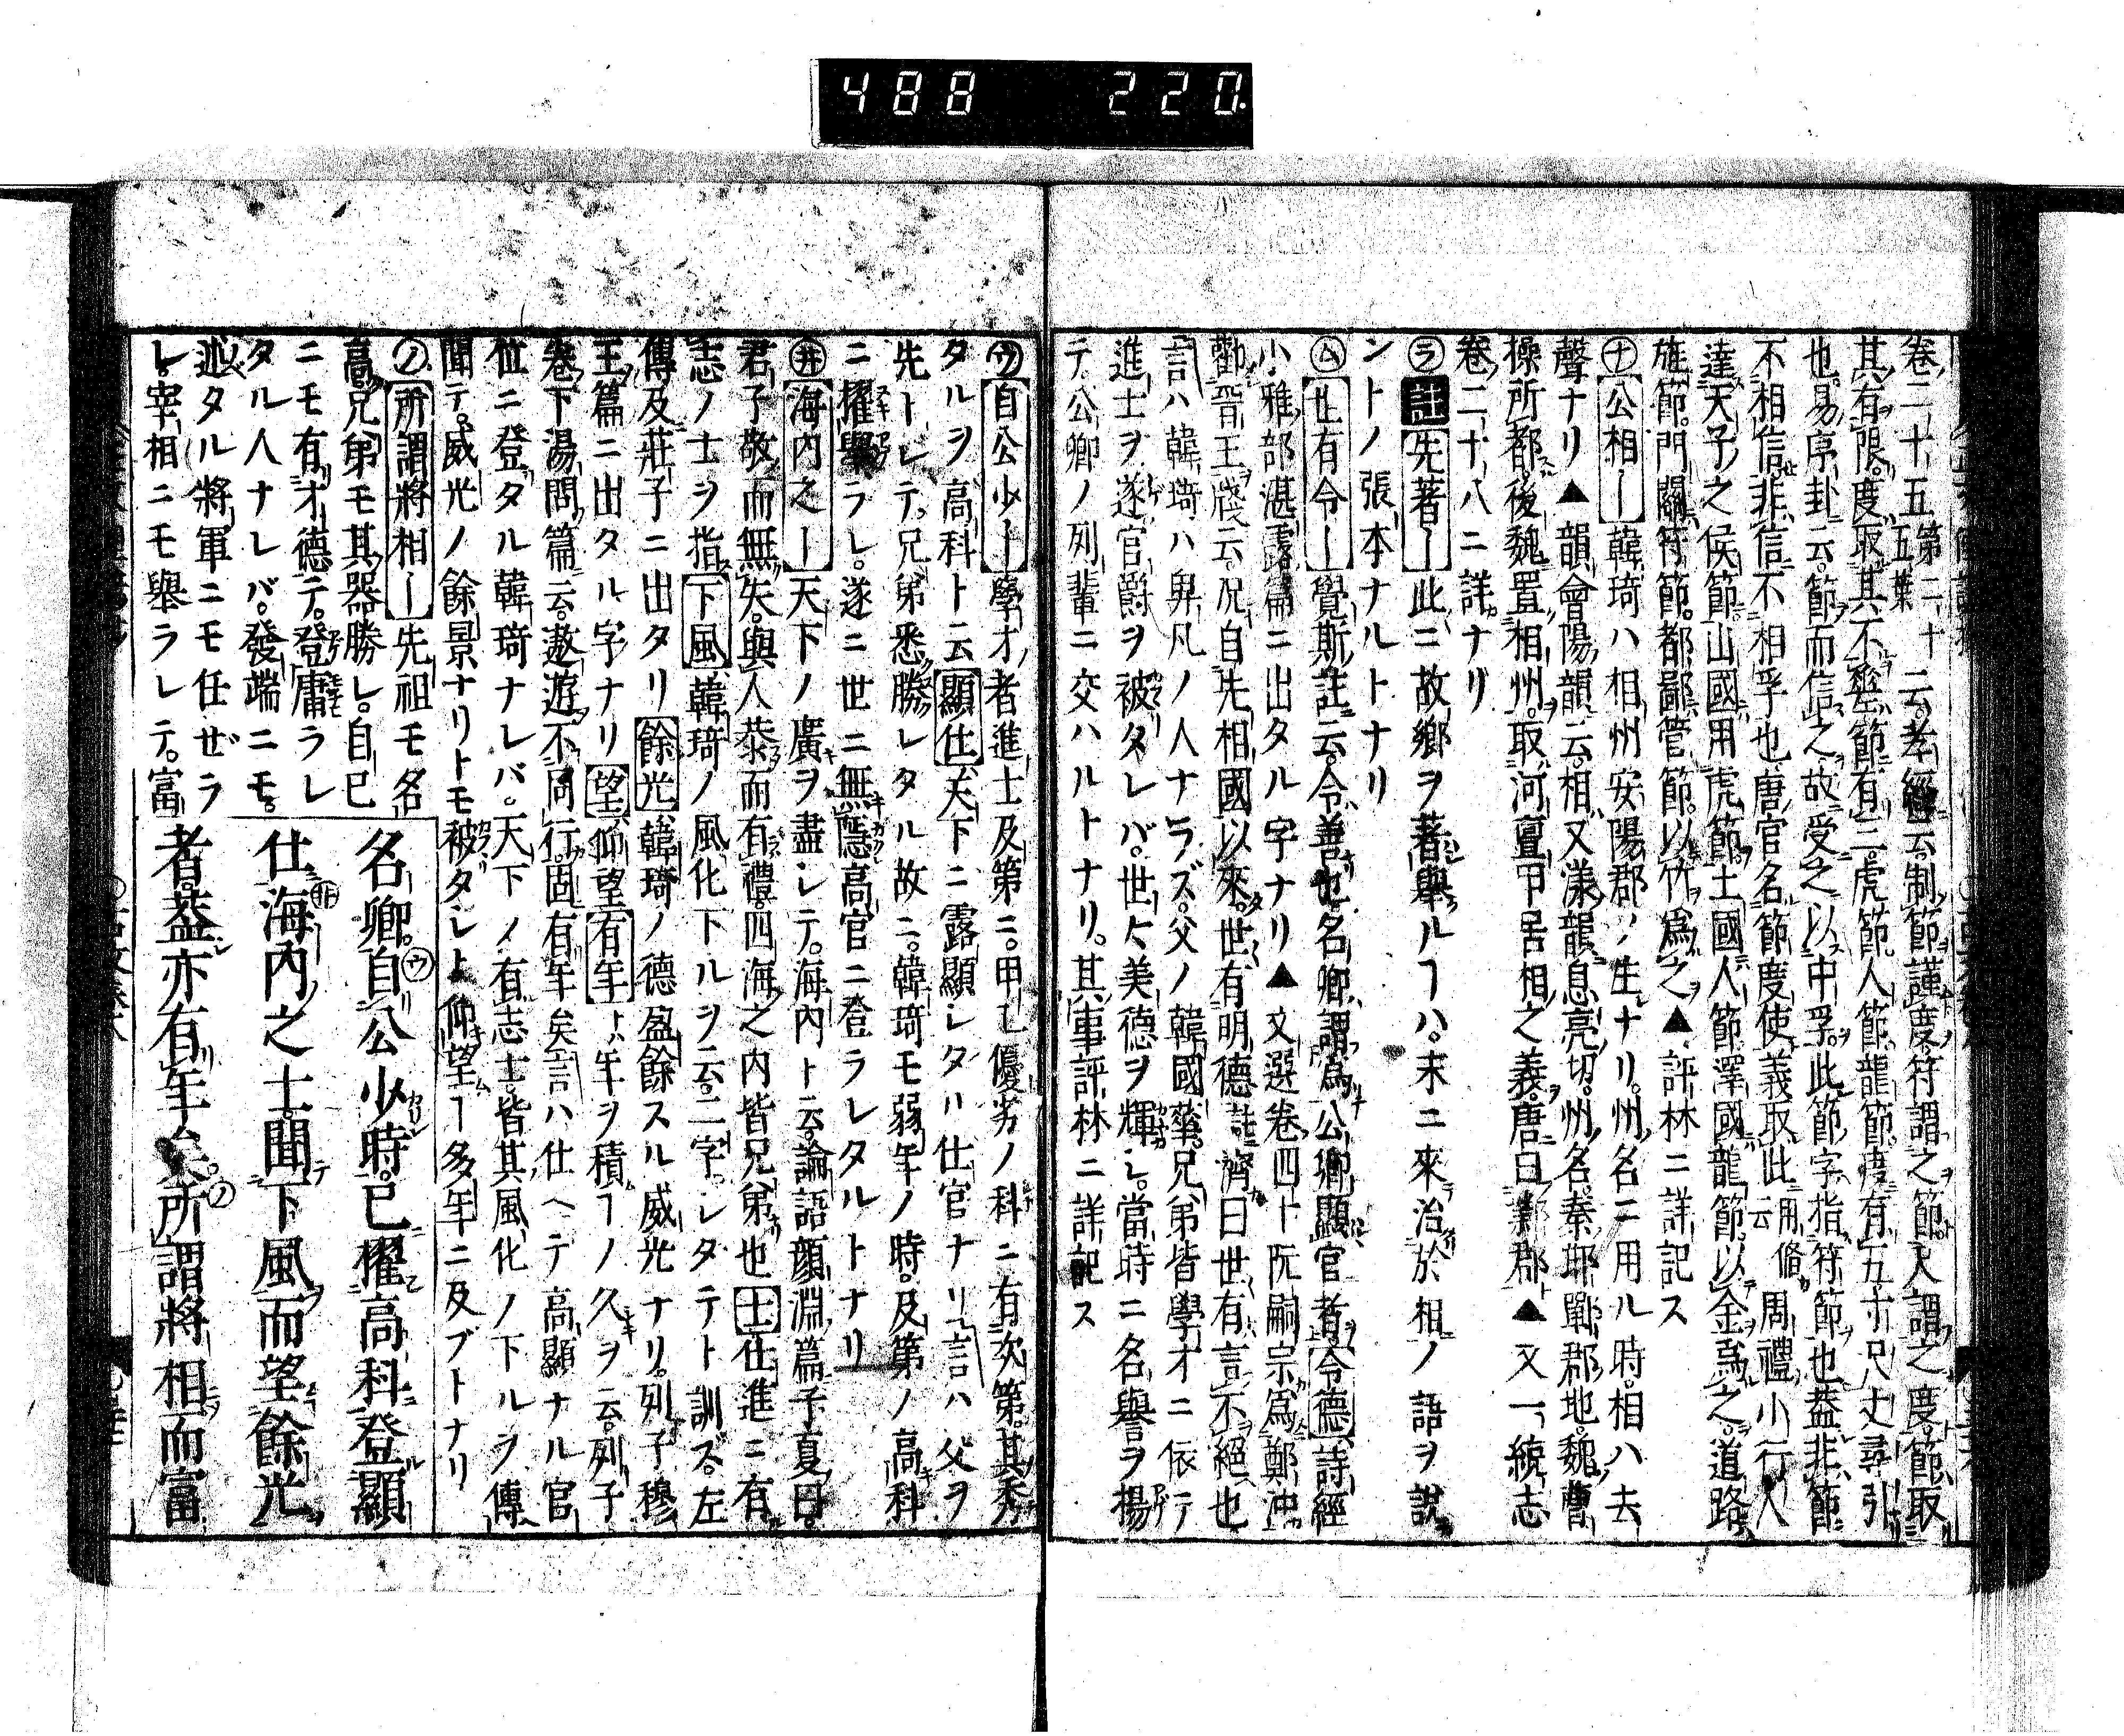 488 220
卷二十五第二十五葉云孝經云制節謹度符謂之節又謂之度節取
其有限度取其不愆節有三虎節人節龍節度有五寸尺丈尋引
也易序卦云節而信之故受之以中孚此節字指符節也蓋非節
不相信非信不相孚也唐官名節度使義取此云用條周禮小行人
達天子之侯節山國用虎節土國人節澤國龍節以金爲之道路
旌節門關符節都鄙管節以竹爲之▲評林ニ詳記ス
㋤公相〡韓琦ハ相州安陽郡ノ生ナリ州名ニ用ル時相ハ去
聲ナリ▲韻會陽韻云相又漾韻息亮切州名秦邯鄲郡地魏曹
操所都後魏置相州取河亶甲居相之義唐曰鄴郡▲又一統志
卷二十八ニ詳ナリ
㋶註先著〡此ニ故鄕ヲ著擧ルヿハ末ニ來治於相ノ語ヲ說
ントノ張本ナルトナリ
㋰世有令〡覺斯註云令善也名卿謂爲公卿顯官者令德詩經
小雅部湛露篇ニ出タル字ナリ▲文選卷四十阮嗣宗爲鄭沖
勸晉王牋云况自先相國以來世有明德註濟曰世有言不絕也
言ハ韓琦ハ異凡ノ人ナラズ父ノ韓國華兄弟皆學才ニ依テ
進士ヲ遂官爵ヲ被タレバ世々美德ヲ輝シ當時ニ名譽ヲ揚
テ公卿ノ列輩ニ交ハルトナリ其事評林ニ詳記ス
㋒自公少〡學才者進士及第ニ甲乙優劣ノ科ニ有次第其秀
タルヲ高科ト云顯仕天下ニ露顯シタル仕官ナリ言ハ父ヲ
先トシテ兄弟悉勝レタル故ニ韓琦モ弱年ノ時及第ノ高科
ニ擢擧ラレ遂ニ世ニ無隱高官ニ登ラレタルトナリ
㋼海内之〡天下ノ廣ヲ盡シテ海内ト云論語顏淵篇子夏曰
君子敬而無失與人恭而有禮四海之内皆兄弟也士仕進ニ有
志ノ士ヲ指下風韓琦ノ風化下ルヲ云二字シタテト訓ズ左
傳及莊子ニ出タリ餘光韓琦ノ德盈餘スル威光ナリ列子穆
王篇ニ出タル字ナリ望仰望有年ト年ヲ積ヿノ久ヲ云列子
卷下湯問篇云遨遊不同行固有年矣言ハ仕ヘテ高顯ナル官
位ニ登タル韓琦ナレバ天下ノ有志士皆其風化ノ下ルヲ傳
聞テ威光ノ餘景ナリトモ被タシト仰望ヿ多年ニ及ブトナリ
㋨所謂將相〡先祖モ名
高兄弟モ其器勝レ自已
ニモ有才德テ登庸ラレ
タル人ナレバ發端ニモ
述タル將軍ニモ任ぜラ
レ宰相ニモ擧ラレテ富
名卿自㋒公少時已擢高科登顯
仕㋼海内之士聞下風而望餘光
者蓋亦有年矣㋨所謂將相而富